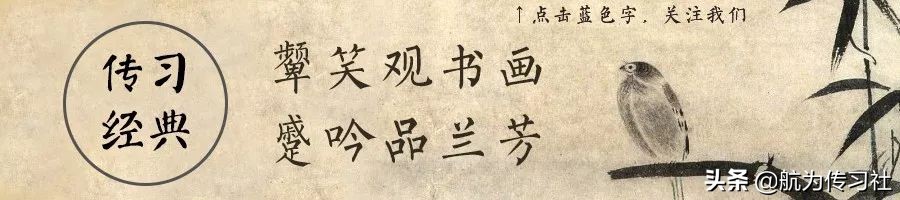 ↑点击蓝色字,关注我们
传习
经典
颦笑观书画
蹙吟品兰芳
头条 @航为传习社